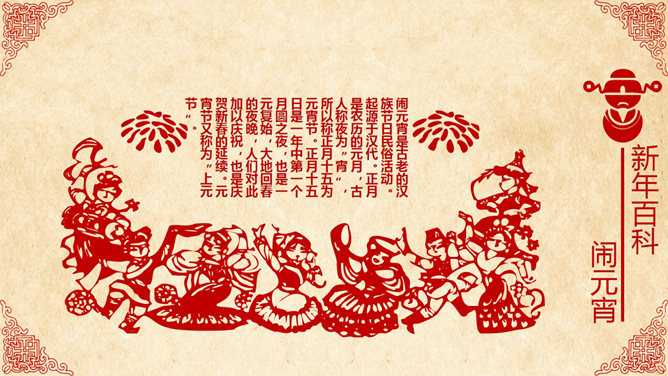 新年百科
闹元宵
闹元宵是古老的汉
族节日民俗活动。
起源于汉代。正月
是农历的元月，古
人称夜为“宵”，
所以称正月十五为
元宵节。正月十五
日是一年中第一个
月圆之夜，也是一
元复始，大地回春
的夜晚，人们对此
加以庆祝，也是庆
贺新春的延续。元
宵节又称为“上元
节”。